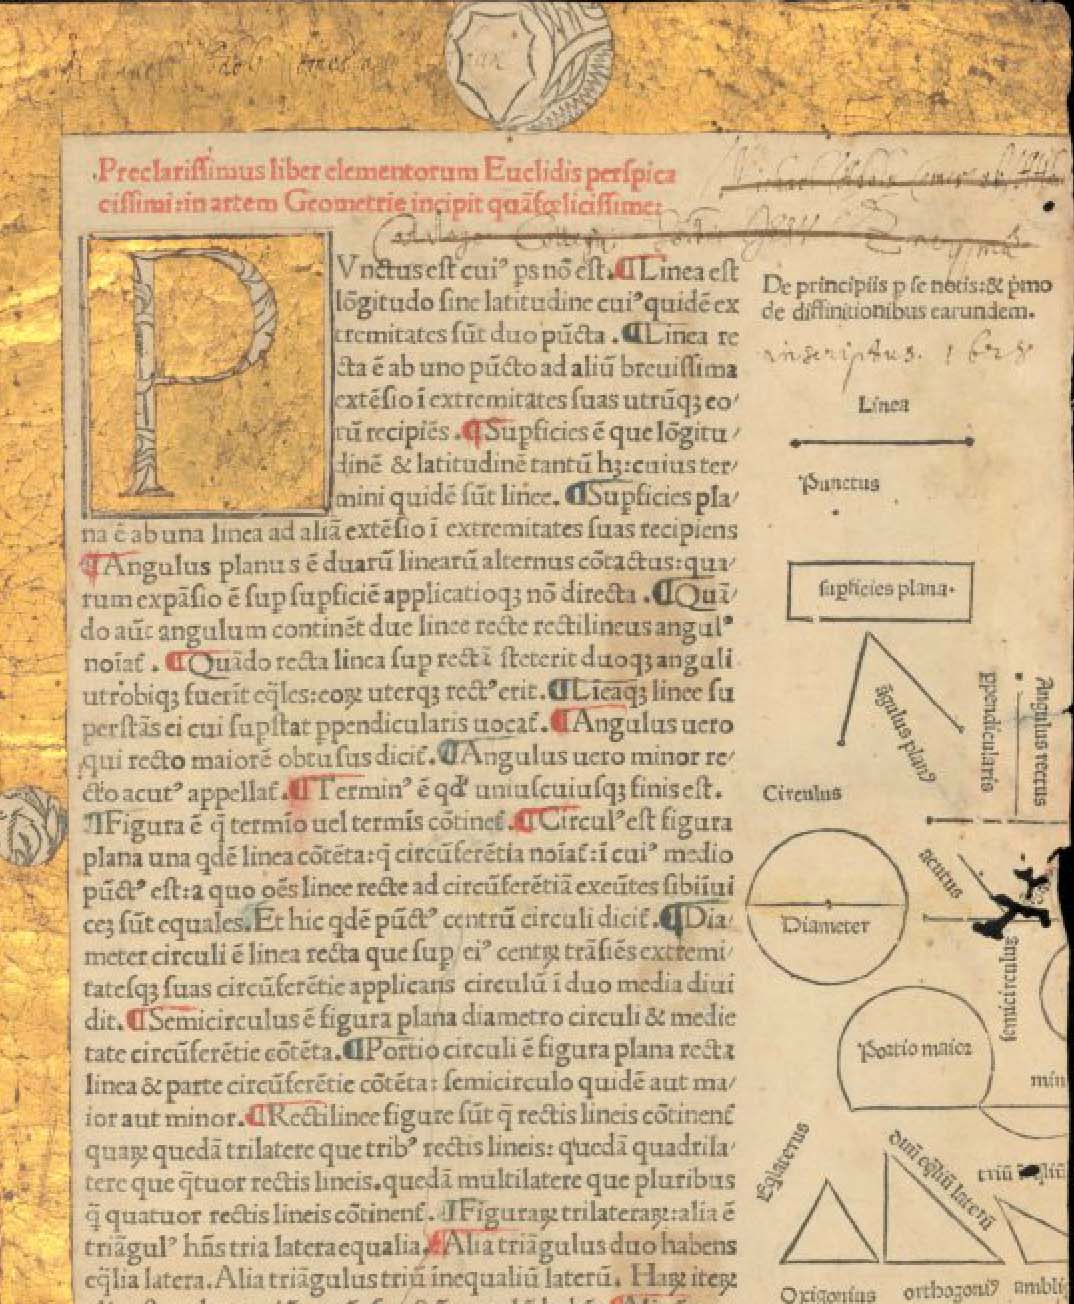 Preclarissimus liber elementorum Euclidis perspica
cissimi: in artem Geometrie incipit quãfœlicissime:
PVnctus est cuiꝰ ps nõ est. ¶ Linea est
lõgitudo sine latitudine cuiꝰ quidẽ ex
tremitates sũt duo pũcta. ¶ Linea re
cta ẽ ab uno pũcto ad aliũ breuissima
extẽsio ĩ extremitates suas utrũqꝫ eo
rũ recipiẽs. ¶ Supficies ẽ que lõgitu
dinẽ & latitudinẽ tantũ hꝫ: cuius ter
mini quidẽ sũt linee. ¶ Supficies pla
na ẽ ab una linea ad aliã extẽsio ĩ extremitates suas recipiens
¶ Angulus planus ẽ duarũ linearũ alternus cõtactus: qua
rum expãsio ẽ sup supficiẽ applicatioqꝫ nõ directa. ¶ Quã
do aũt angulum continẽt due linee recte rectilineus angulꝰ
noĩat̃. ¶ Quãdo recta linea sup rectã steterit duoqꝫ anguli
utrobiqꝫ fuerĩt eq̃les: eoꝝ uterqꝫ rectꝰ erit. ¶ Lĩeaqꝫ linee su
perstãs ei cui supstat ppendicularis uocat̃. ¶ Angulus uero
qui recto maiorẽ obtusus dicit̃. ¶ Angulus uero minor re
cto acutꝰ appellat̃. ¶ Terminꝰ ẽ qd̃ uniuscuiusqꝫ finis est.
¶ Figura ẽ q̃ termĩo uel termĩs cõtinet̃. ¶ Circulꝰ est figura
plana una qdẽ linea cõtẽta: q̃ circũferẽtia noĩat̃: ĩ cuiꝰ medio
pũctꝰ est: a quo oẽs linee recte ad circũferẽtiã exeũtes sibiĩui
ceꝫ sũt equales. Et hic qdẽ pũctꝰ centrũ circuli dicit̃. ¶ Dia
meter circuli ẽ linea recta que sup eiꝰ centꝝ trãsiẽs extremi
tatesqꝫ suas circũferẽtie applicans circulũ ĩ duo media diui
dit. ¶ Semicirculus ẽ figura plana diametro circuli & medie
tate circũferẽtie cõtẽta. ¶ Portio circuli ẽ figura plana recta
linea & parte circũferẽtie cõtẽta: semicirculo quidẽ aut ma
ior aut minor. ¶ Rectilinee figure sũt q̃ rectis lineis cõtinent̃
quaꝝ quedã trilatere que tribꝰ rectis lineis: quedã quadrila
tere que q̃tuor rectis lineis. quedã multilatere que pluribus
q̃ quatuor rectis lineis cõtinent̃. ¶ Figuraꝝ trilateraꝝ: alia ẽ
triãgulꝰ hñs tria latera equalia. Alia triãgulus duo habens
eq̃lia latera. Alia triãgulus triũ inequaliũ laterũ. Haꝝ iteꝝ
De principiis p se notis: & p̃mo
de diffinitionibus earundem.
inscriptus. 1628
Linea
Punctus
supficies plana.
ãgulus planꝰ
ppendicularis
Angulus rectus
Circulus
acutus
Diameter
semicirculus
Portio maior
min
Eqlaterus
duũ eq̃liũ laterũ
triũ
Oxigonius
orthogoniꝰ
ambli